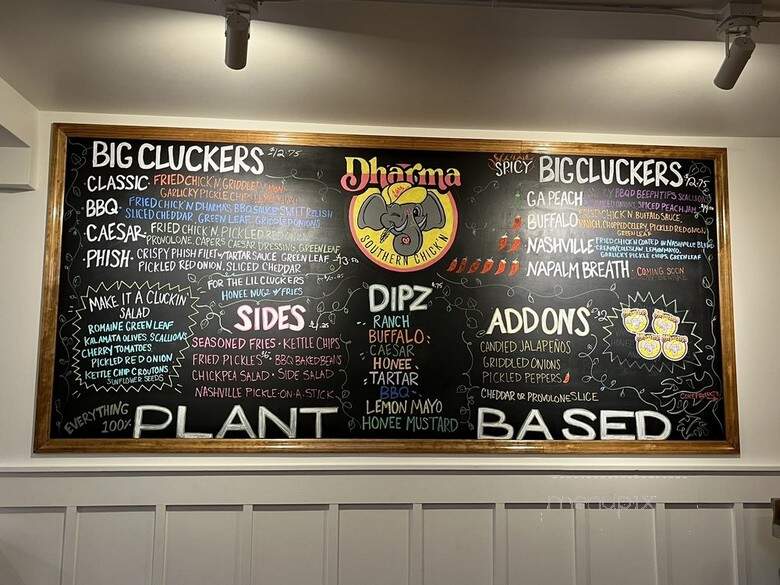 BIG CLUCKERS $12.75
CLASSIC- FRIED CHICK'N GRIDDLED
GARLICKY PICKLE CHIPS
BBQ- FRIED CHICK'N DHARMA'S BBQ SAUCE SWEET RELISH
SLICED CHEDDAR GREEN LEAF GRIDDLED ONIONS
CAESAR- FRIED CHICK'N. PICKLED RED ONION
PROVOLONE. CAPERS CAESAR DRESSING. GREEN LEAF
PHISH. CRISPY PHISH FILET w/TARTAR SAUCE GREEN LEAF
PICKLED RED ONION. SLICED CHEDDAR
FOR THE LIL CLUCKERS
HONEE NUGZ & FRIES
MAKE IT A CLUCKIN' SALAD
ROMAINE GREEN LEAF
KALAMATA OLIVES SCALLIONS
CHERRY TOMATOES
PICKLED RED ONION
KETTLE CHIP CROUTONS
SUNFLOWER SEEDS
SIDES
SEASONED FRIES · KETTLE CHIPS
FRIED PICKLES · BBQ BAKED BEANS
CHICKPEA SALAD · SIDE SALAD
NASHVILLE PICKLE-ON-A-STICK
Dharma
SOUTHERN CHICK'N
DIPZ
RANCH
BUFFALO
CAESAR
HONEE
TARTAR
BBQ
LEMON MAYO
HONEE MUSTARD
SPICY BIG CLUCKERS
GA PEACH
SPICED PEACH JAM
BUFFALO- FRIED CHICK'N BUFFALO SAUCE,
RANCH, CHOPPED CELERY, PICKLED RED ONION
GREEN LEAF
NASHVILLE- FRIED CHICK'N COATED IN NASHVILLE BLEND
CREAMY COLESLAW LEMON MAYO,
GARLICKY PICKLE CHIPS, GREEN LEAF
NAPALM BREATH - COMING SOON
ADD ONS
CANDIED JALAPEÑOS
GRIDDLED ONIONS
PICKLED PEPPERS
CHEDDAR OR PROVOLONE SLICE
EVERYTHING 100% PLANT BASED
menupix